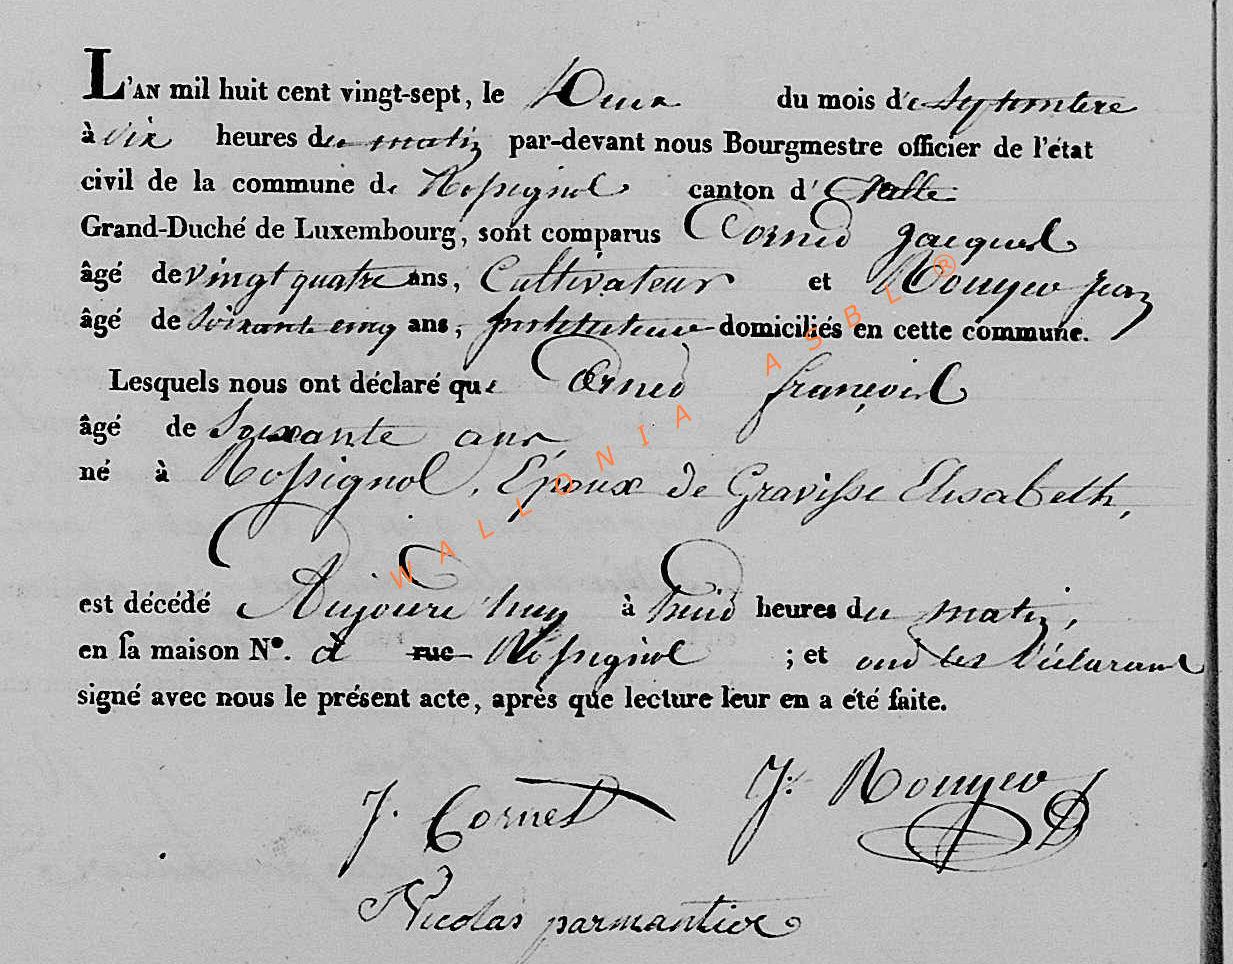 L'AN mil huit cent vingt-sept, le Onze du mois de Septembre
à dix heures du matin par-devant nous Bourgmestre officier de l'état
civil de la commune de Rossignol canton d' Etalle
Grand-Duché de Luxembourg, sont comparus Cornet Jacques
âgé de vingt quatre ans, Cultivateur et Rouyer Jean
âgé de Soixante cinq ans, Instituteur domiciliés en cette commune.
Lesquels nous ont déclaré que Cornet François
âgé de Soixante ans
né à Rossignol, Époux de Gravisse Elisabeth,
est décédé Aujourd'huy à huit heures du matin,
en sa maison N°. à rue Rossignol ; et ont les déclarans
signé avec nous le présent acte, après que lecture leur en a été faite.
J. Cornet J. Rouyer
Nicolas parmantier
WALLONIA ASBL ®